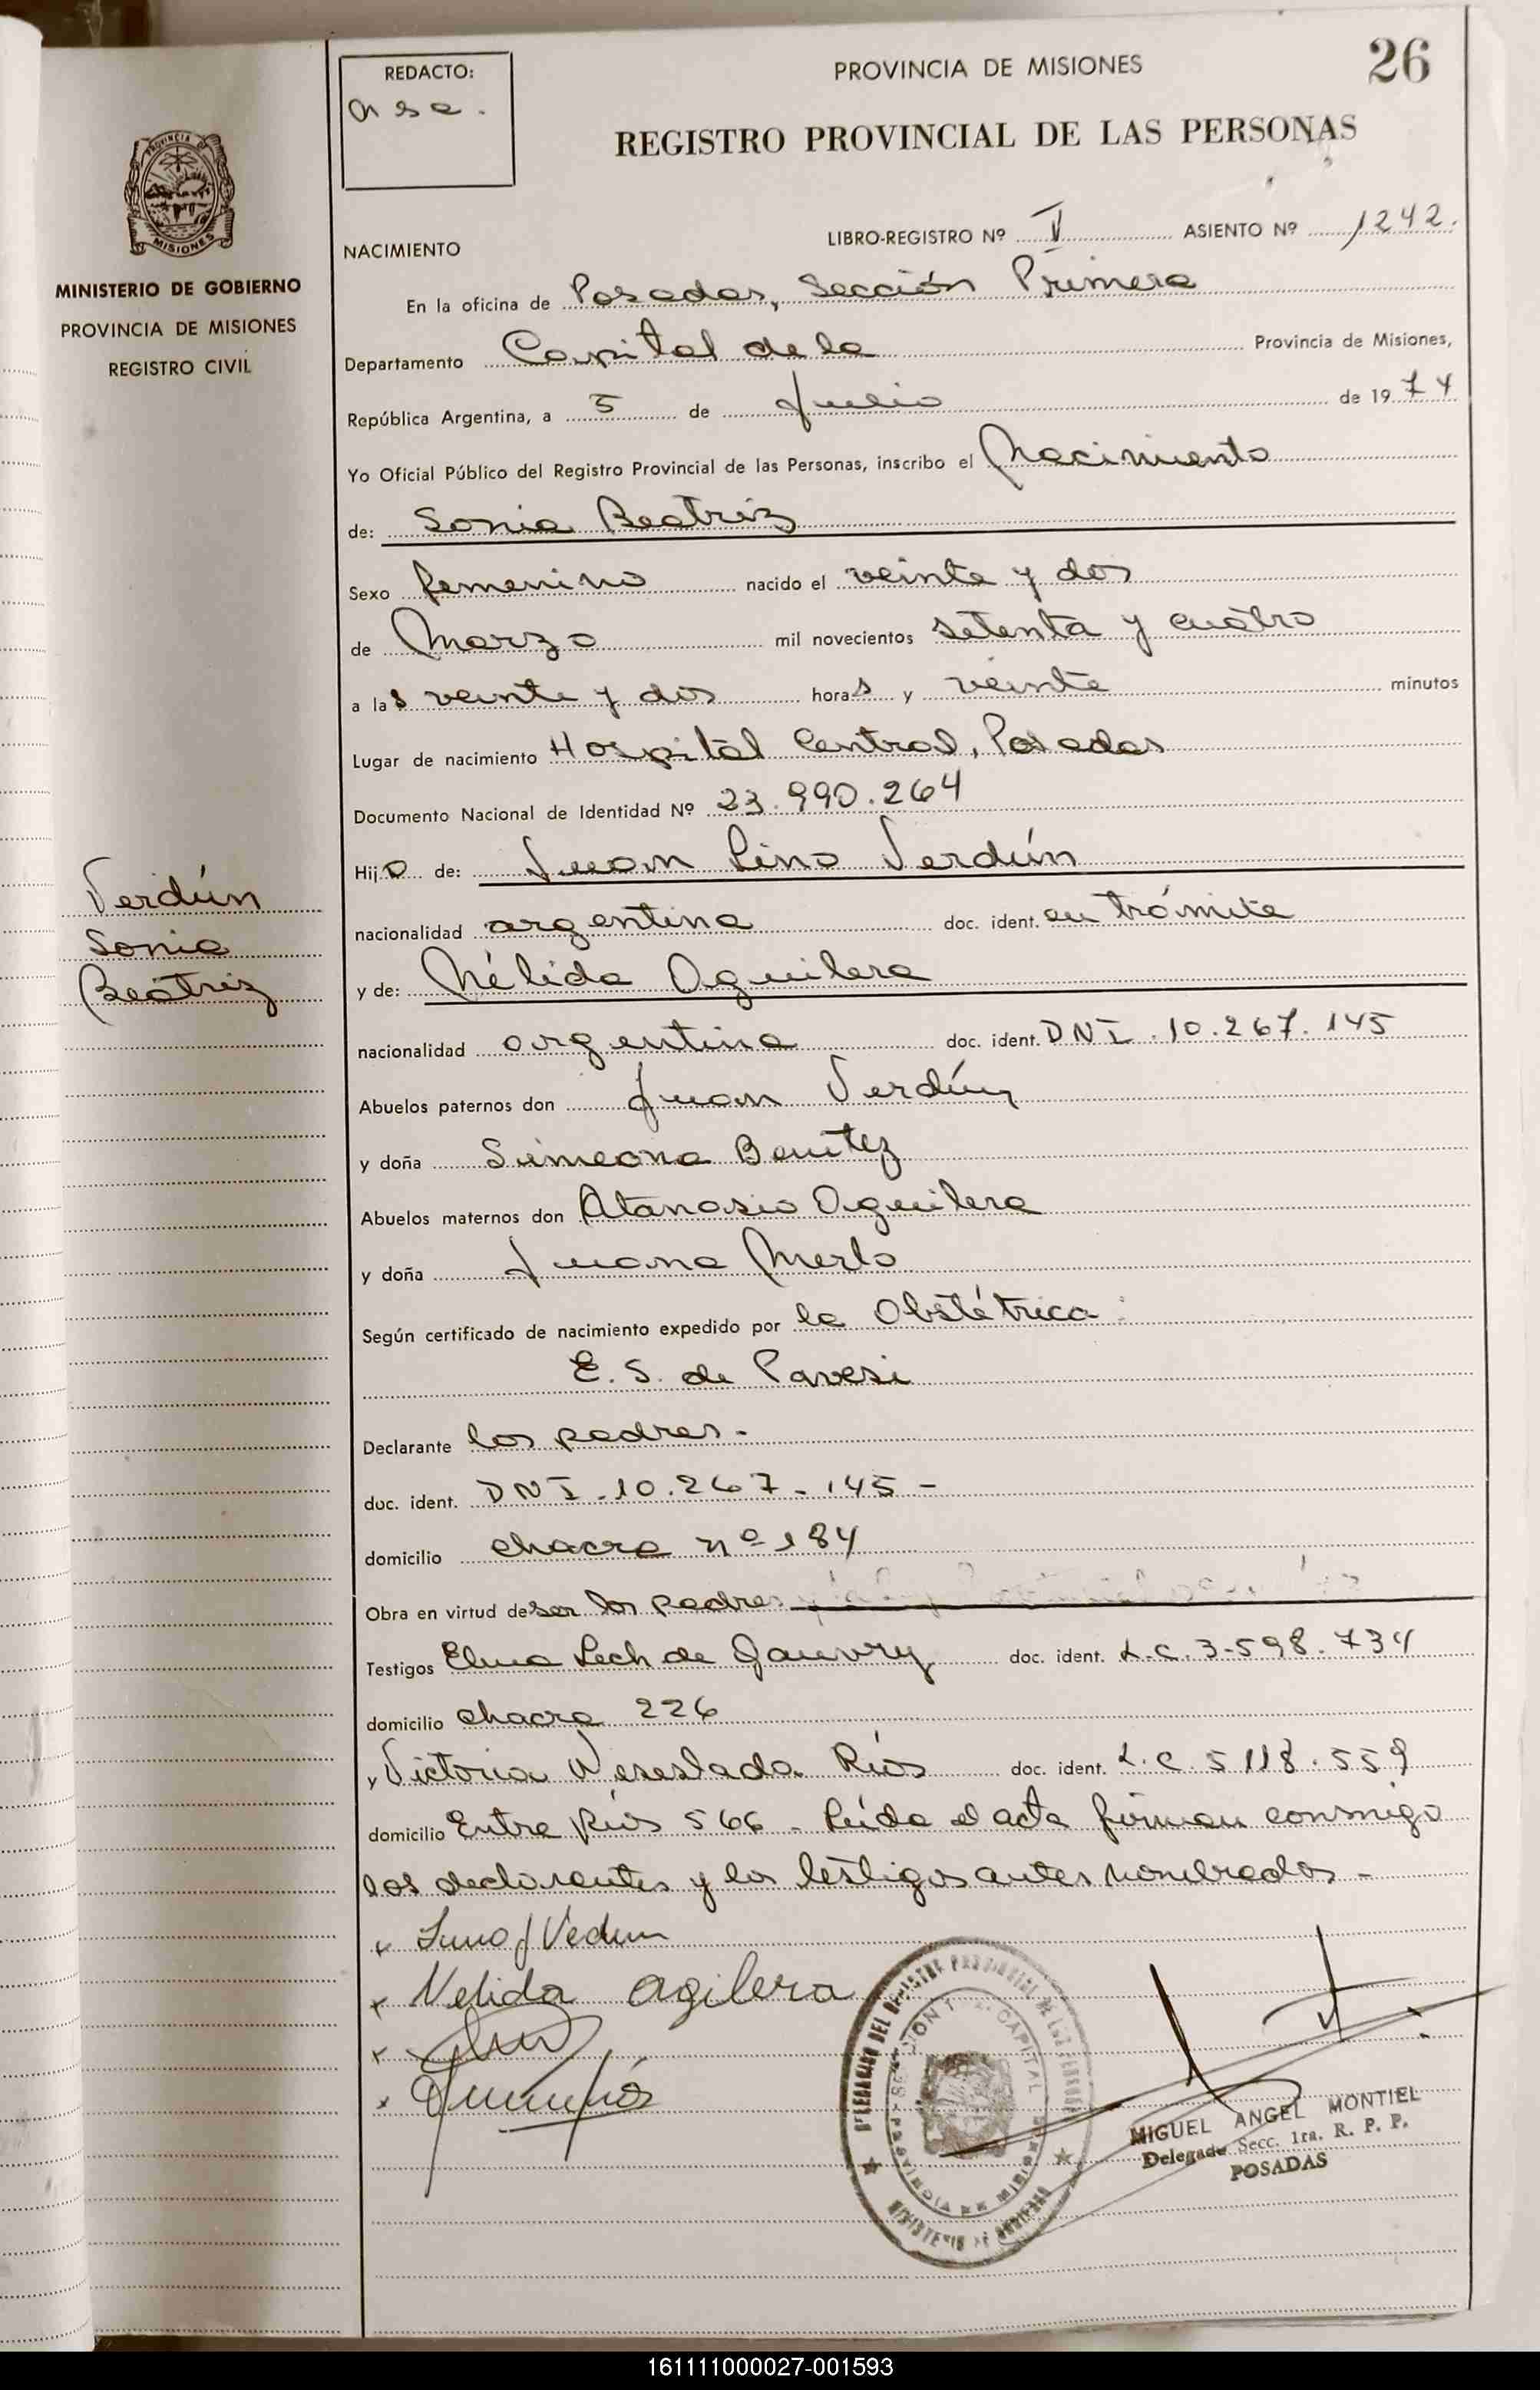 26
REDACTO:
PROVINCIA DE MISIONES
REGISTRO PROVINCIAL DE LAS PERSONAS
PROVINCIA DE
MISIONES
MINISTERIO DE GOBIERNO
PROVINCIA DE MISIONES
REGISTRO CIVIL
LIBRO-REGISTRO Nº V ASIENTO Nº 1242.
NACIMIENTO
En la oficina de Posadas, Sección Primera
Departamento Capital de la Provincia de Misiones,
República Argentina, a 5 de Julio de 1974
Yo Oficial Público del Registro Provincial de las Personas, inscribo el Nacimiento
de: Sonia Beatriz
Sexo femenino nacido el veinte y dos
de Marzo mil novecientos setenta y cuatro
a las veinte y dos horas y veinte minutos
Lugar de nacimiento Hospital Central, Posadas
Documento Nacional de Identidad Nº 23.990.264
Hija de: Juan Lino Verdún
nacionalidad argentina doc. ident. en trámite
y de: Nélida Aguilera
nacionalidad argentina doc. ident. DNI. 10.267.145
Verdún
Sonia
Beatriz
Abuelos paternos don Juan Verdún
y doña Simeona Benitez
Abuelos maternos don Atanasio Aguilera
y doña Juana Merlo
Según certificado de nacimiento expedido por la Obstétrica
E. S. de Pavesi
Declarante los padres.
doc. ident. DNI. 10.267.145-
domicilio chacra nº 184
Obra en virtud de ser los padres
Testigos Elena Lech de doc. ident. L.C. 3.598.734
domicilio chacra 226
y Victoria Ríos doc. ident. L.C 5118.559
domicilio Entre Ríos 566. Leída el acta firman conmigo
los declarantes y los testigos antes nombrados.
Nelida agilera
MIGUEL ANGEL MONTIEL
Delegado Secc. 1ra. R. P. P.
POSADAS
161111000027-001593